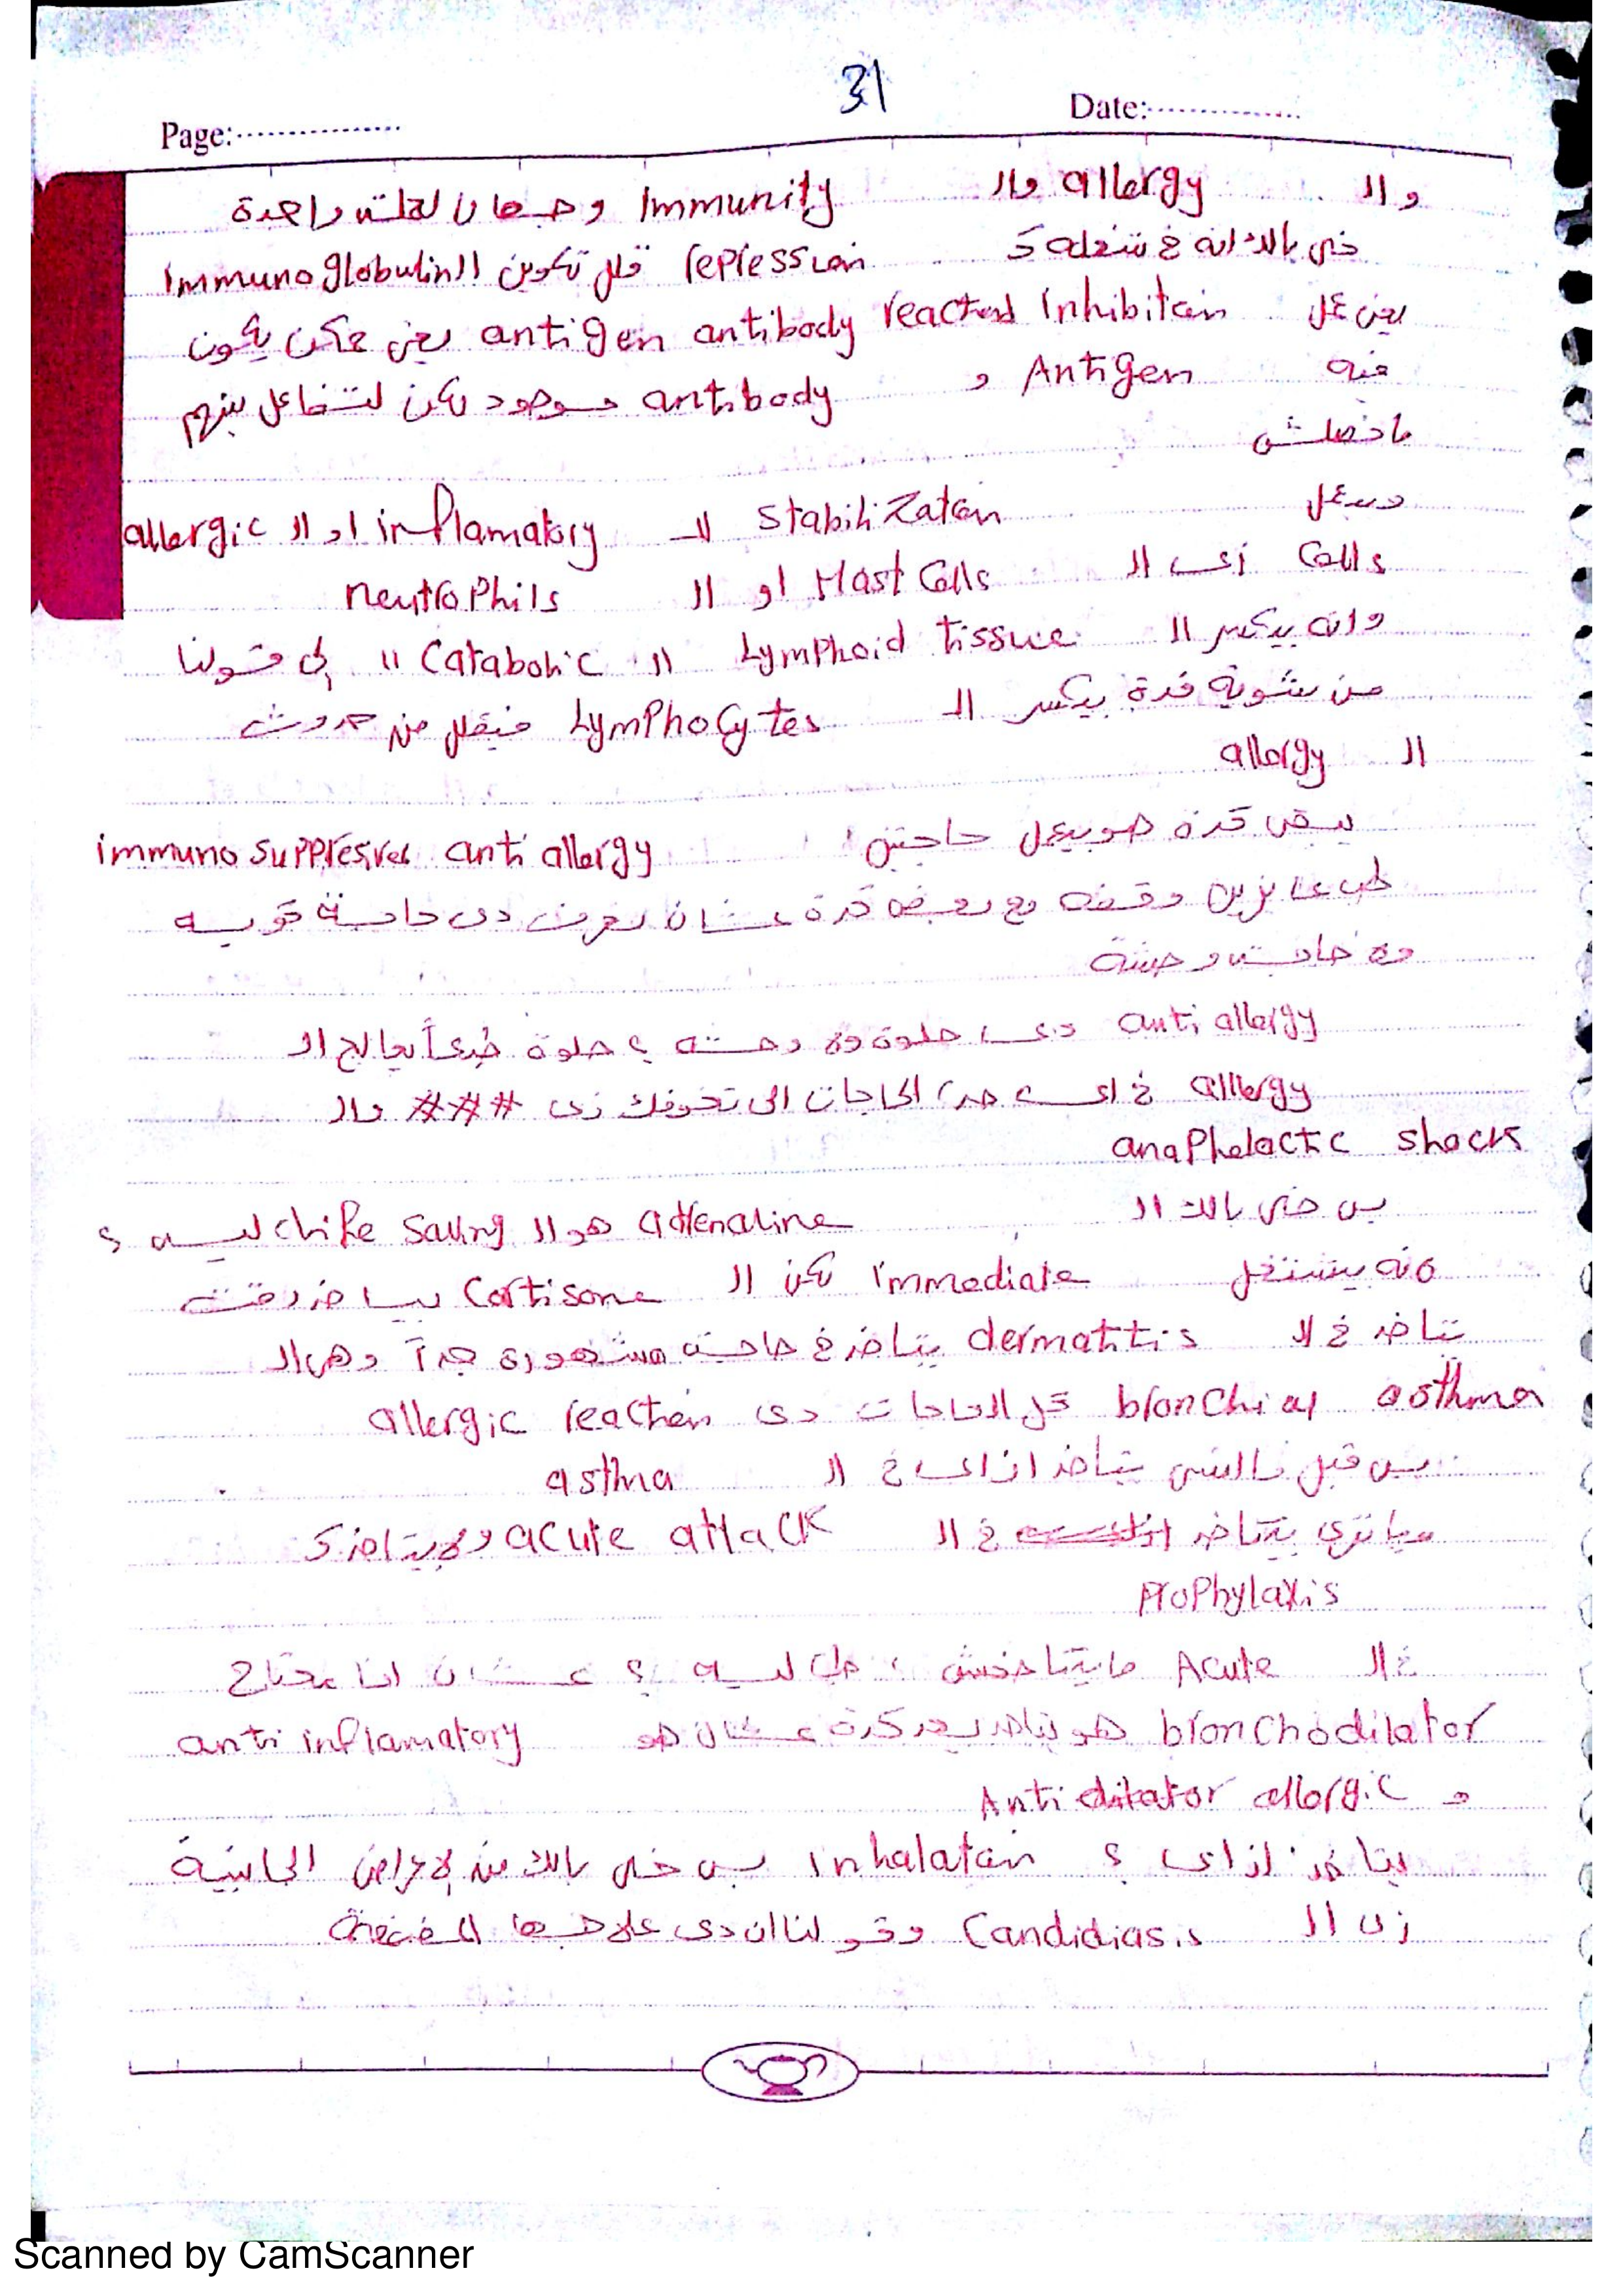 31
Page:................ Date:................
وال allergy وال Immunity وجهان لعملة واحدة
خلي بالك انه في شغله repression قلل تكوين ال Immunoglobulin
يعني عمل Inhibition reaction antigen antibody يعني ممكن يكون
فيه Antigen و antibody موجود لكن التفاعل بينهم
ماحصلش
وبيعمل Stabilization لل inflamatory او ال allergic
Cells زى ال Mast Cells او ال neutrophils
وانه بيكسر ال Lymphoid tissue ال Catabolic اللي قولنا
من شوية فدة بيكسر ال Lymphocytes فيقلل من حدوث
ال allergy
يبقى كدة هو بيعمل حاجتين immunosuppresives anti allergy
طب عايزين وقفه مع بعض كدة عشان نعرف دى حاجة كويسه
وة حاجة وحشة
anti allergy دى حلوة وة وحشه ؟ حلوة طبعاً بعالج ال
allergy في الحاجات الى تخوفك زى ### وال
anaphelactic shock
بس خلي بالك ال adrenaline هو ال life saving ليه ؟
ﻷنه بيشتغل immediate لكن ال Cortisone بياخد وقت
يتاخد في ال dermatitis يتاخد في حاجة مشهورة جداً وهى ال
bronchial asthma كل الحاجات دى allergic reaction
بس قبل ماانسى يتاخد ازاى في ال asthma
ياترى بيتاخد في ال acute attack ولا بيتاخد ك
Prophylaxis
في ال Acute مابيتاخدش ، طب ليه ؟ عشان انا محتاج
bronchodilator هو بيتاخد بعد كدة عشان هو anti inflamatory
و Anti allergic
بيتاخد ازاى ؟ inhalation بس خلي بالك من الاعراض الجانبية
زى ال Candidiasis وقولنا ان دى علاجها المضمضة
Scanned by CamScanner